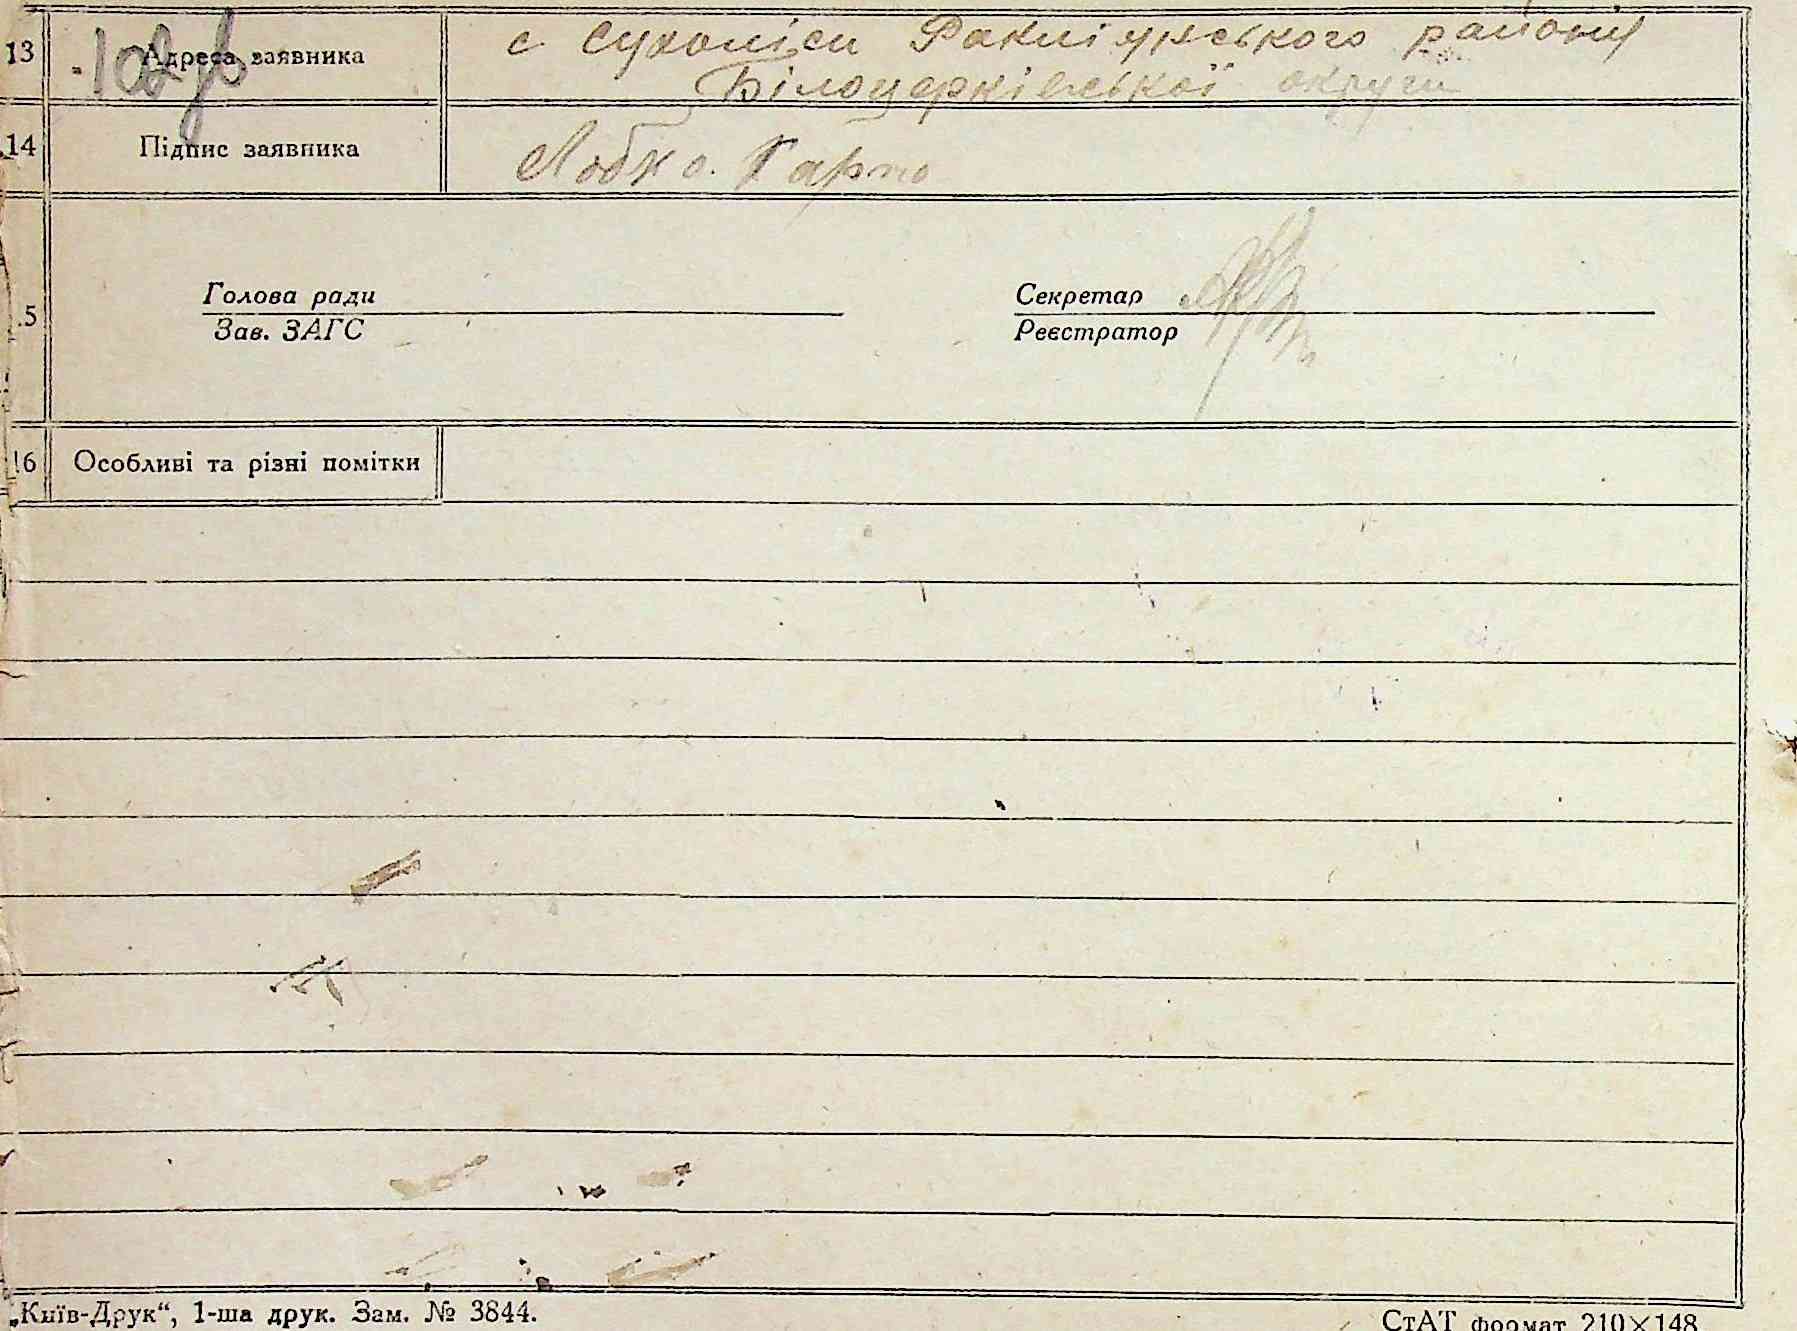 13 Адреса заявника с Сухоліси Ракитянського району
102 зв
Білоцерківської округи
14 Підпис заявника Лобко Карпо
Голова ради Секретар
15
Зав. ЗАГС Реєстратор
16 Особливі та різні помітки
„Київ-Друк“, 1-ша друк. Зам. № 3844. СтАТ формат 210×148